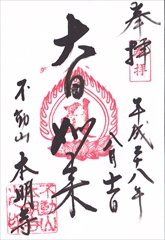 奉拝
平成二八年
八月十一日
大日如来
不動山 本明寺